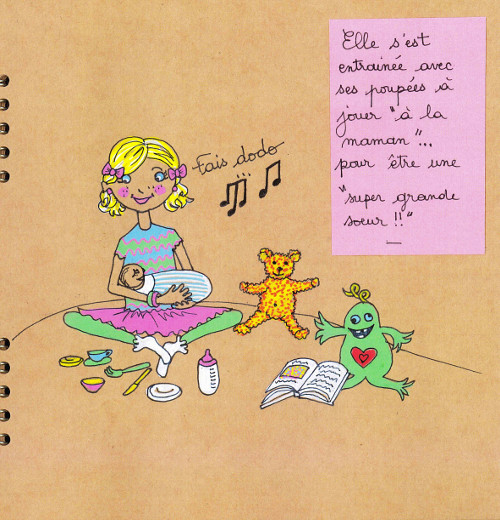 Elle s'est
entrainée avec
ses poupées à
jouer "à la
maman"...
pour être une
"super grande
soeur !!"
Fais dodo
...